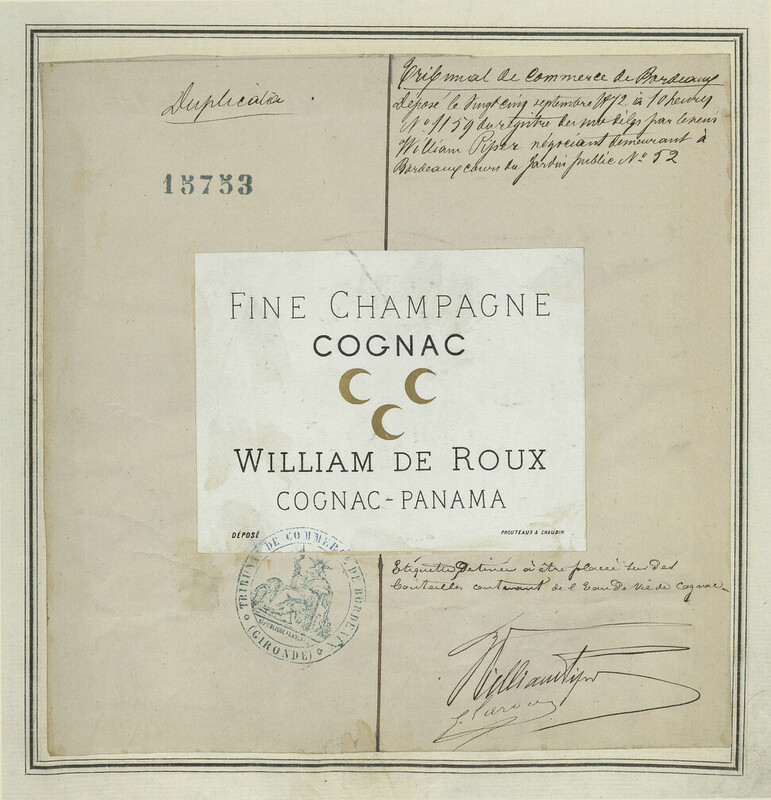 Duplicata
15753
Tribunal de Commerce de Bordeaux
Déposé le vingt cinq septembre 1872 à 10 heures
No 1159 du registre des modèles par le sieur
William Piper négociant demeurant à
Bordeaux cours du Jardin public No 52
FINE CHAMPAGNE
COGNAC
WILLIAM DE ROUX
COGNAC-PANAMA
DÉPOSÉ
PROUTEAUX & CHAUBIN
TRIBUNAL DE COMMERCE DE BORDEAUX
(GIRONDE)
Etiquette Destinée à être placée sur des
bouteilles contenant de l'Eau De Vie de Cognac
William Piper